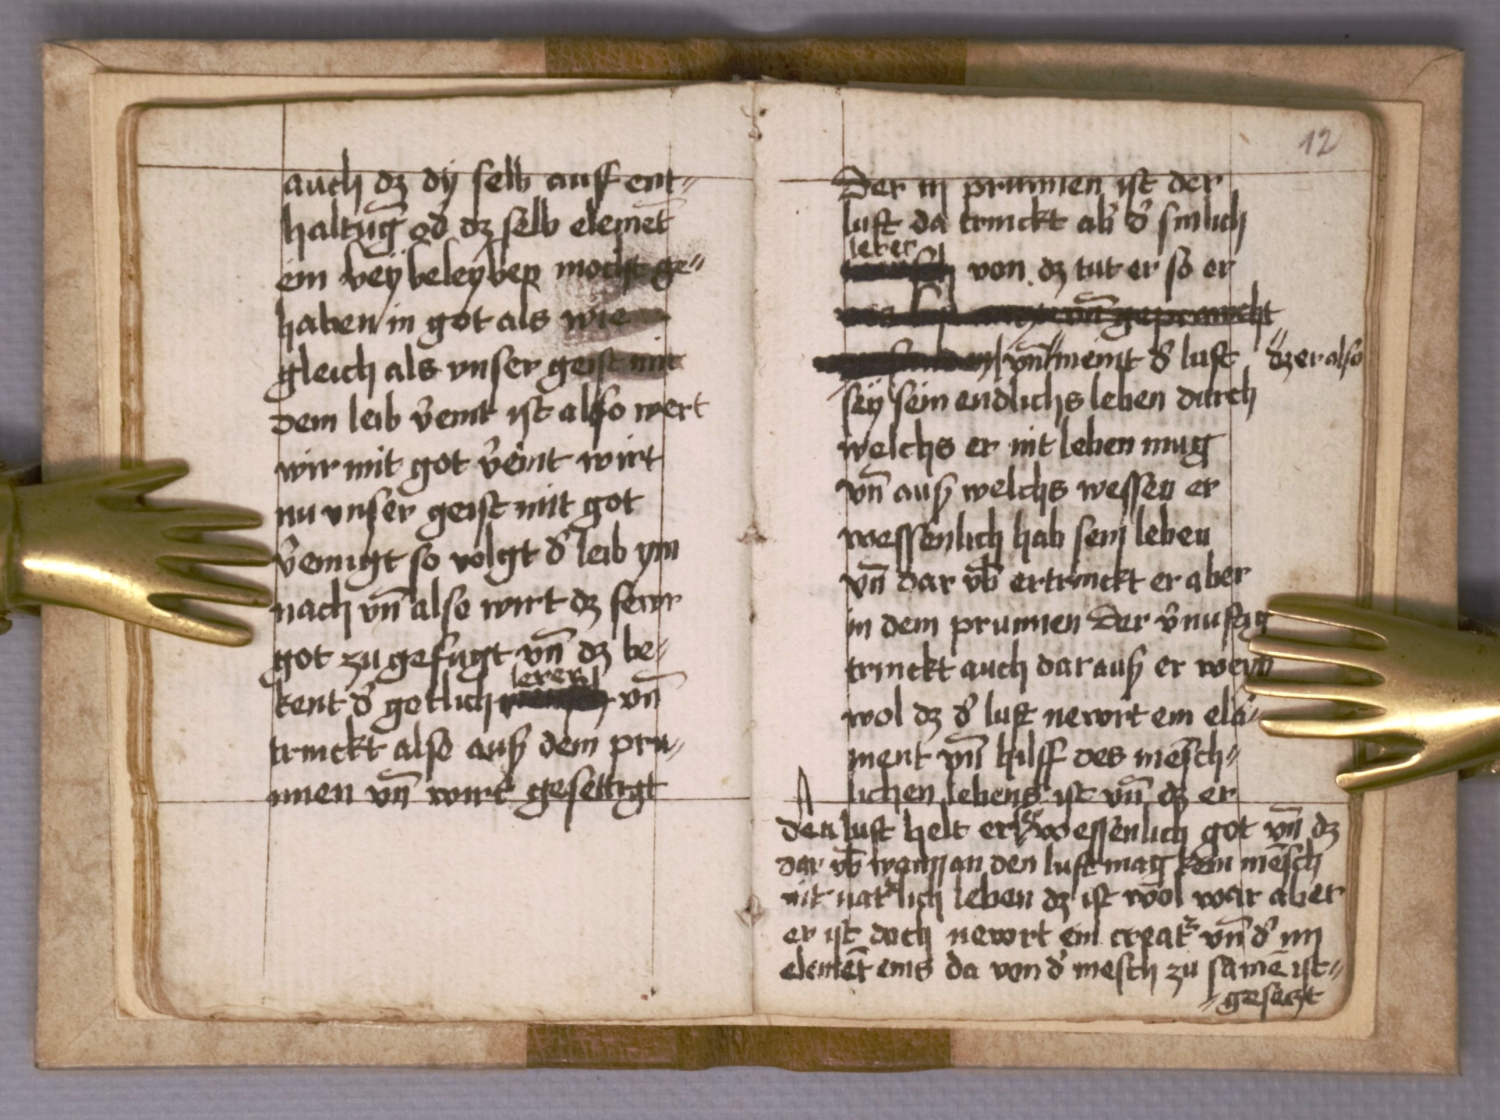 auch dz dÿ selb auff ent⸗
haltūg od dz selb elemēt
ein beÿ beleÿben mocht ge⸗
haben in got als wie
gleich als vnser geist mit
dem leib v̄eint ist also wert
wir mit got v̄eint wirt
nu vnser geist mit got
v̄einigt so volgt d' leib ym
nach vn̄ also wirt dz fewr
got zu gefugt vn̄ dz be⸗
kent d' gotlich lerer vn̄
trinckt also auß dem pru⸗
nnen vn̄ wirt gesettigt
12
Der iij prunnen ist der
luft da trinckt ab' d' sinlich
lerer von dz tut er so er
vn̄ gepraucht
vn̄ meint d' luft dz er also
seÿ sein endlichs leben durch
welchs er nit leben mug
vn̄ auß welchs wessen er
wessenlich hab sein leben
vn̄ dar vb̄ ertrinckt er aber
in dem prunnen Der v̄nuftig
trinckt auch darauß er weys
wol dz d' luft newrt ein ele⸗
ment vn̄ hilff des mēsch⸗
lichen lebens ist vn̄ dz er
den luft helt er wessenlich got vn̄ dz
dar vb̄ wann an den luft mag kein mēsch
nit nat'lich leben dz ist wol war aber
er ist doch newrt ein creat' vn̄ d' iiij
elemēt eins da von d' mesch zu samē ist⸗
⸗gesetzt